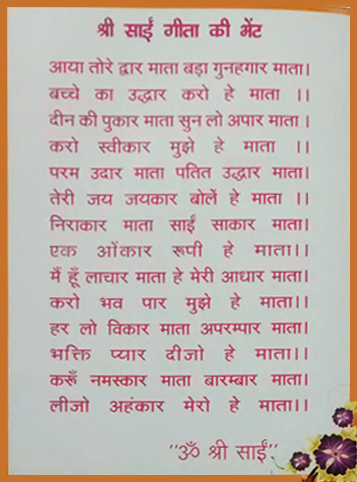 श्री साईं गीता की भेंट
आया तोरे द्वार माता बड़ा गुनहगार माता।
बच्चे का उद्धार करो हे माता ।।
दीन की पुकार माता सुन लो अपार माता ।
करो स्वीकार मुझे हे माता ।।
परम उदार माता पतित उद्धार माता।
तेरी जय जयकार बोलें हे माता ।।
निराकार माता साईं साकार माता।
एक ओंकार रूपी हे माता।।
मैं हूँ लाचार माता हे मेरी आधार माता।
करो भव पार मुझे हे माता।।
हर लो विकार माता अपरम्पार माता।
भक्ति प्यार दीजो हे माता।।
करूँ नमस्कार माता बारम्बार माता।
लीजो अहंकार मेरो हे माता।।
"ॐ श्री साईं"